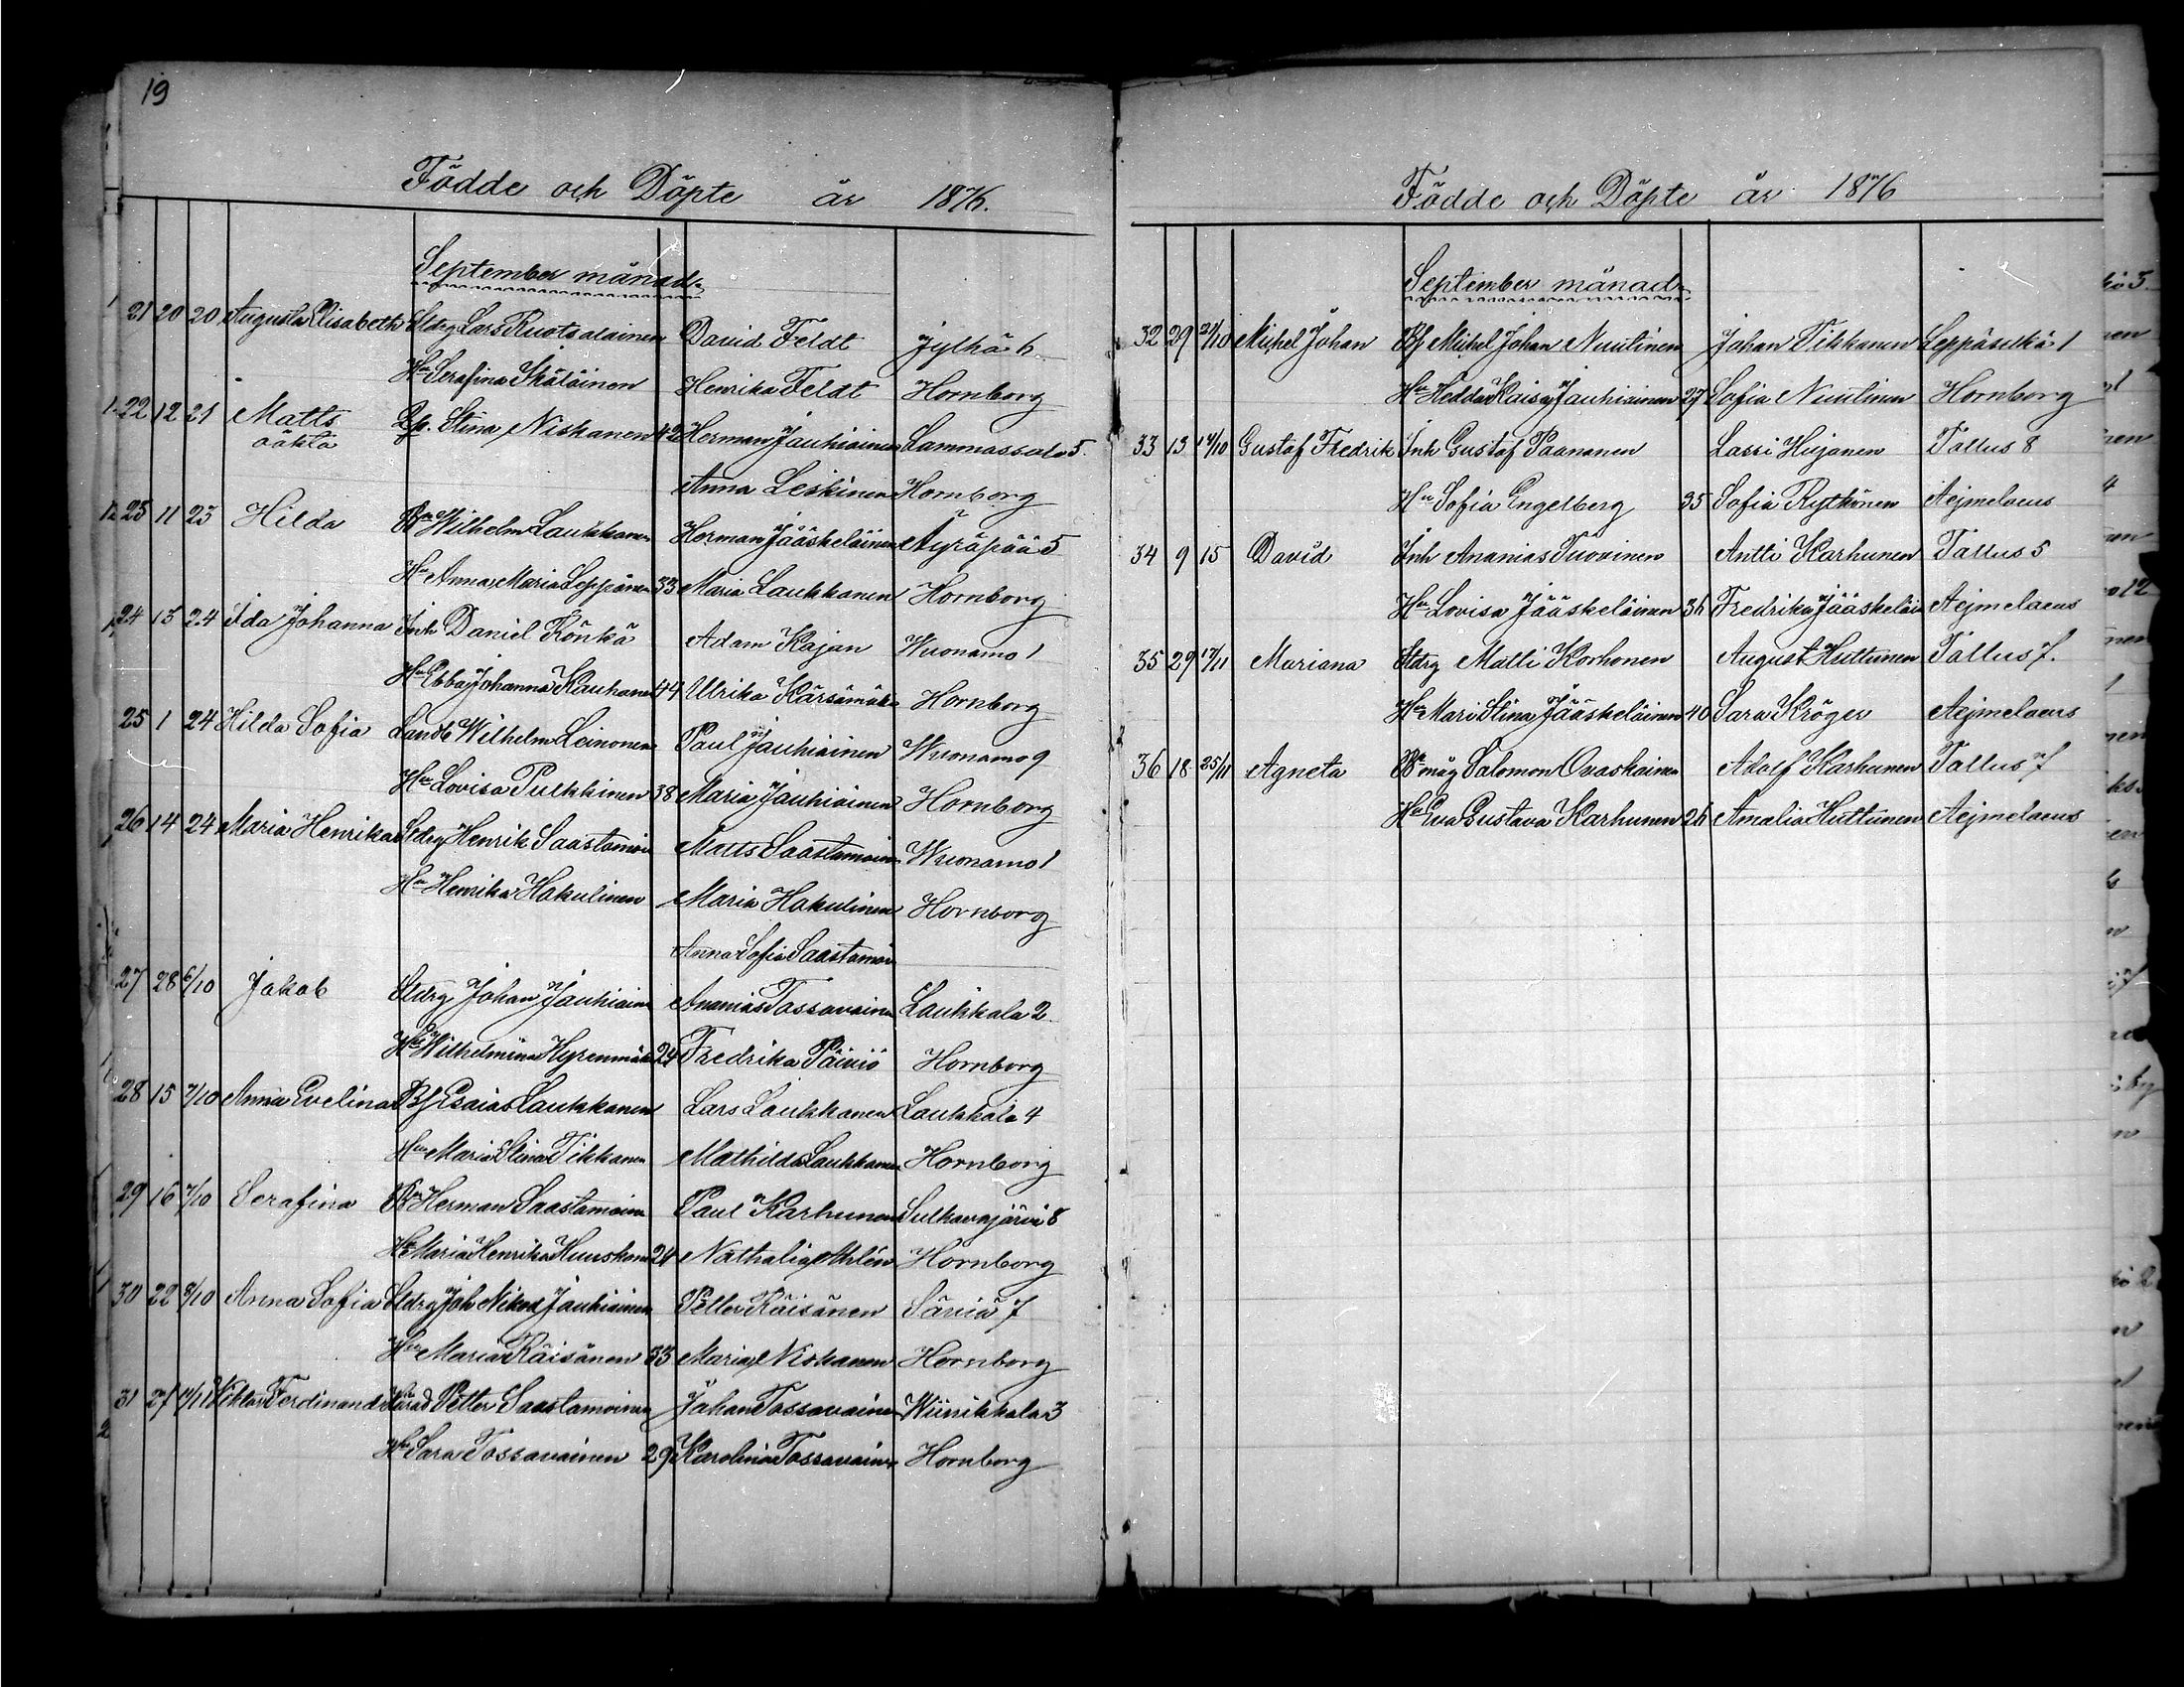 19
Födde och Döpte år 1876.
September månad
21 20 20 Augusta Elisabeth Stdrg Lars Ruotsalainen David Feldt Jylhä 6
Hu Serafina Skäläinen Henrika Feldt Hornborg
22 12 21 Matts Stina Niskanen 42 Herman Jauhiainen Lammassalo 5.
oäkta
Anna Leskinen Hornborg
23 11 23 Hilda Wilhelm Laukkanen Herman Jääskeläinen Äyräpää 5
Hu Anna Maria Leppänen 33 Maria Laukkanen Hornborg
24 15 24 Ida Johanna Inh Daniel Könkä Adam Kajan Wuonamo 1
Hu Ebba Johanna Kauhanen 44 Ulrika Kärsämäk Hornborg
25 1 24 Hilda Sofia Landb Wilhelm Leinonen Paul Jauhiainen Wuonamo 9
Hu Lovisa Pulkkinen 38 Maria Jauhiainen Hornborg
26 14 24 Maria Henrika Stdrg Henrik Saastamoin Matts Saastamoinen Wuonamo 1
Hu Henrika Hakulinen Maria Hakulinen Hornborg
Anna Sofia Saastamoin
27 28 6/10 Jakob Stdrg Johan Jauhiainen Ananias Tossavainen Laukkala 2
Hu Wilhelmina Hyrenmäk 24 Fredrika Päiviö Hornborg
28 15 7/10 Anna Evelina Bf Esaias Laukkanen Lars Laukkanen Laukkala 4
Hu Maria Stina Tikkanen Mathilda Laukkanen Hornborg
29 16 7/10 Serafina Herman Saastamoinen Paul Karhunen Sulkavajärvi 8
Hu Maria Henrika Huuskonen 24 Nathalia Ahlén Hornborg
30 22 8/10 Anna Sofia Stdrg Joh Nikod Jauhiainen Petter Räisänen Särviä 7
Hu Maria Räisänen 33 Maria Niskanen Hornborg
31 27 11/11 Viktor Ferdinand Petter Saastamoinen Johan Tossavainen Wiinikkala 3
Hu Sara Tossavainen 29 Karolina Tossavainen Hornborg
Födde och Döpte år 1876
September månad
32 29 21/10 Michel Johan Bf Michel Johan Nuutinen Johan Tikkanen Leppäselkä 1
Hu Hedda Kaisa Jauhiainen 27 Sofia Nuutinen Hornborg
33 13 14/10 Gustaf Fredrik Inh Gustaf Paananen Lassi Hujanen Tallus 8
Hu Sofia Engelberg 35 Sofia Rytkönen Aejmelaeus
34 9 15 David Inh Ananias Tuovinen Antti Karhunen Tallus 5
Hu Lovisa Jääskeläinen 36 Fredrika Jääskeläin Aejmelaeus
35 29 12/11 Mariana Stdrg Matti Korhonen August Huttunen Tallus 7.
Hu Mari Stina Jääskeläinen 40 Sara Kröger Aejmelaeus
36 18 25/11 Agneta Br måg Salomon Ovaskainen Adolf Karhunen Tallus 7
Hu Eva Gustava Karhunen 26 Amalia Huttunen Aejmelaeus